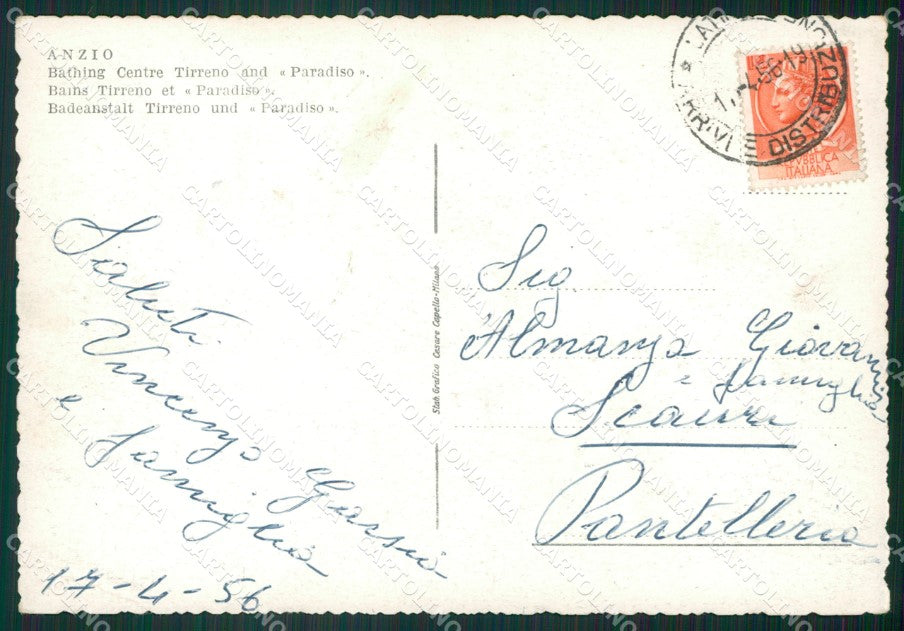 ANZIO
Bathing Centre Tirreno and « Paradiso ».
Bains Tirreno et « Paradiso ».
Badeanstalt Tirreno und « Paradiso ».
ARRIVI E DISTRIBUZIONE
REPUBBLICA
ITALIANA
Saluti
Vincenzo
e Famiglia
17-4-56
Stab. Grafico Cesare Capello-Milano
Sig
Almanza Giovanni
e famiglia
Scauri
Pantelleria
CARTOLINOMANIA